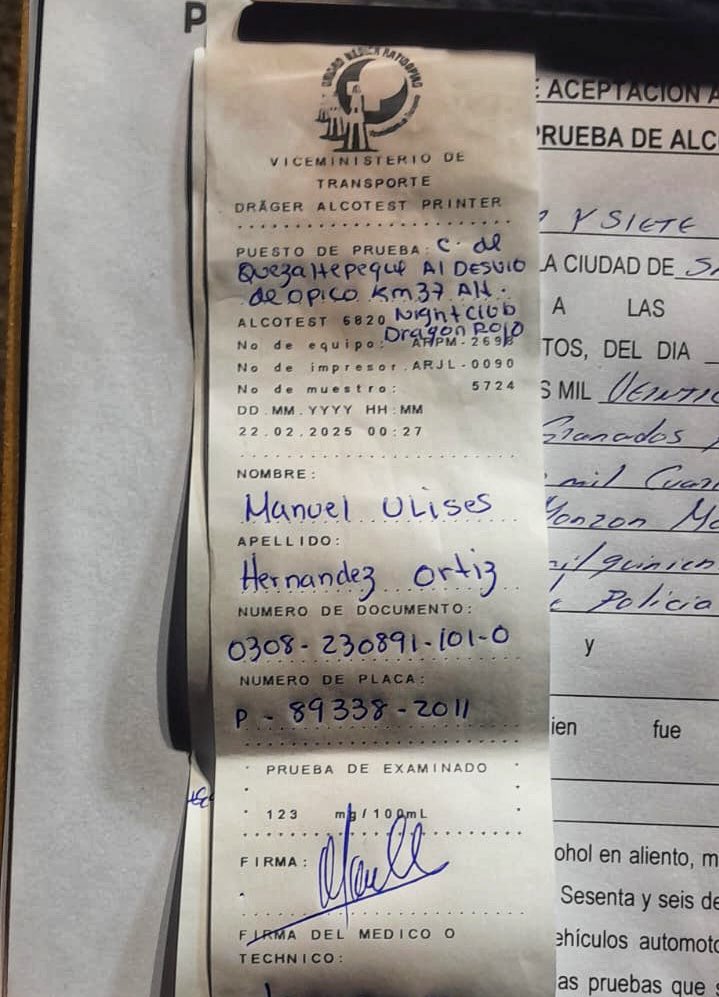 P
VICEMINISTERIO DE
TRANSPORTE
DRÄGER ALCOTEST PRINTER
PUESTO DE PRUEBA: C. de
Quezaltepeque Al DESVIO
de opico Km 37 Alt.
ALCOTEST 6820 Night Club
Dragon Rojo
No de equipo: ARPM-2698
No de impresor. ARJL-0090
No de muestro: 5724
DD.MM.YYYY HH:MM
22.02.2025 00:27
NOMBRE:
Manuel Ulises
APELLIDO:
Hernandez Ortiz
NUMERO DE DOCUMENTO:
0308-230891-101-0
NUMERO DE PLACA:
P-89338-2011
PRUEBA DE EXAMINADO
123 mg/100mL
FIRMA:
FIRMA DEL MEDICO O
TECHNICO:
E ACEPTACION A
PRUEBA DE ALC
Y SIETE
LA CIUDAD DE
A LAS
TOS, DEL DIA
S MIL
Granados
mil
Monzon
Policia
y
ien fue
ohol en aliento, m
Sesenta y seis de
ehículos automoto
as pruebas que s